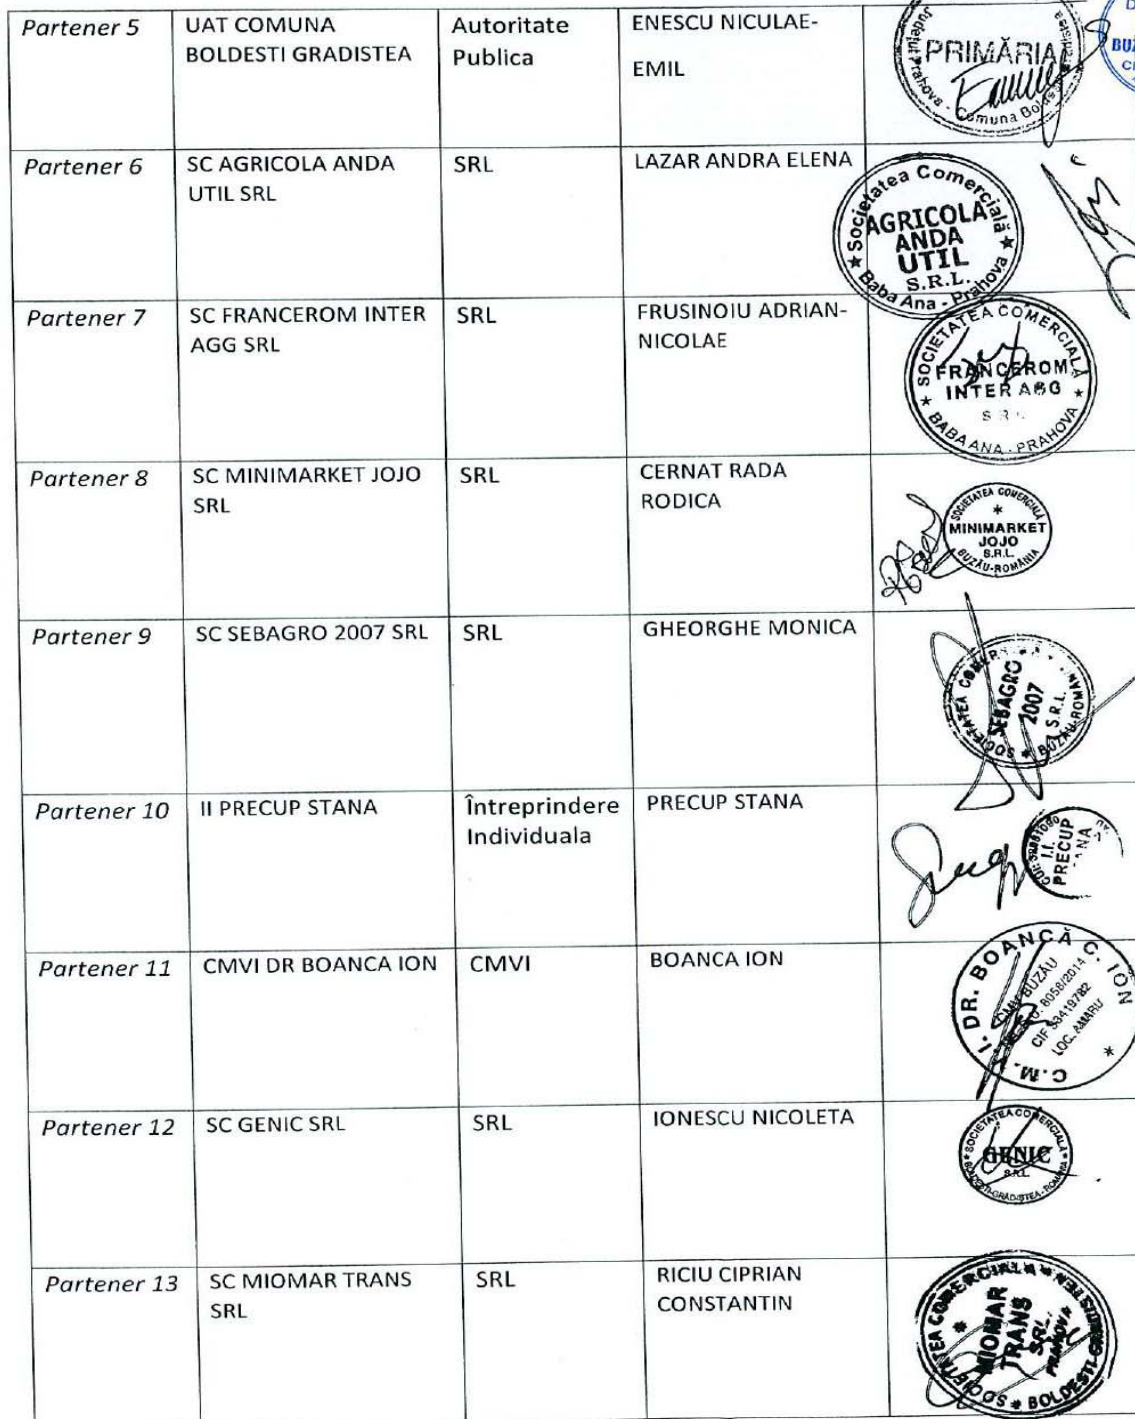 Partener 5 UAT COMUNA Autoritate ENESCU NICULAE-
BOLDESTI GRADISTEA Publica EMIL
Judeţul Prahova - Comuna
PRIMĂRIA
Partener 6 SC AGRICOLA ANDA SRL LAZAR ANDRA ELENA
UTIL SRL
Societatea Comercială
AGRICOLA
ANDA
UTIL
S.R.L.
Baba Ana - Prahova
Partener 7 SC FRANCEROM INTER SRL FRUSINOIU ADRIAN-
AGG SRL NICOLAE
SOCIETATEA COMERCIALĂ
FRANCEROM
INTER
BABA ANA - PRAHOVA
Partener 8 SC MINIMARKET JOJO SRL CERNAT RADA
SRL RODICA
SOCIETATEA COMERCIALĂ
MINIMARKET
JOJO
S.R.L.
BUZĂU-ROMÂNIA
Partener 9 SC SEBAGRO 2007 SRL SRL GHEORGHE MONICA
SOCIETATEA
SEBAGRO
2007
S.R.L.
Partener 10 II PRECUP STANA Întreprindere PRECUP STANA
Individuala
I.I.
PRECUP
Partener 11 CMVI DR BOANCA ION CMVI BOANCA ION
C.M. I. DR. BOANCĂ C. ION
BUZĂU
8058/2014
CIF 33419782
LOC. AMARU
Partener 12 SC GENIC SRL SRL IONESCU NICOLETA
SOCIETATEA COMERCIALĂ
GENIC
S.R.L.
BOLDEŞTI-GRĂDIŞTEA - ROMÂNIA
Partener 13 SC MIOMAR TRANS SRL RICIU CIPRIAN
SRL CONSTANTIN
SOCIETATEA COMERCIALA
MIOMAR
TRANS
SRL
PRAHOVA
BOLDESTI-GRADISTEA